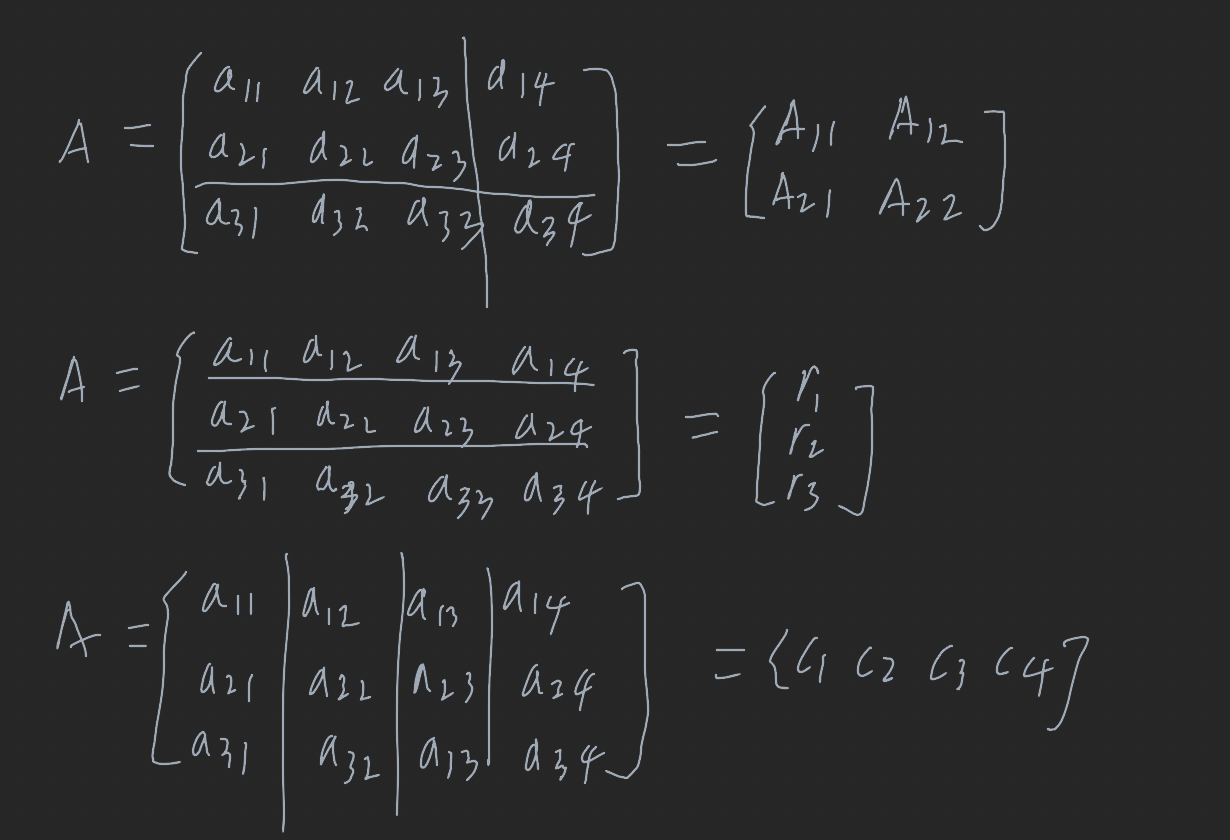 A = [ a11 a12 a13 | a14
a21 a22 a23 | a24
a31 a32 a32 | a34 ] = [ A11 A12
A21 A22 ]
A = [ a11 a12 a13 a14
a21 a22 a23 a24
a31 a32 a33 a34 ] = [ r1
r2
r3 ]
A = [ a11 | a12 | a13 | a14
a21 | a22 | a23 | a24
a31 | a32 | a13 | a34 ] = [ c1 c2 c3 c4 ]